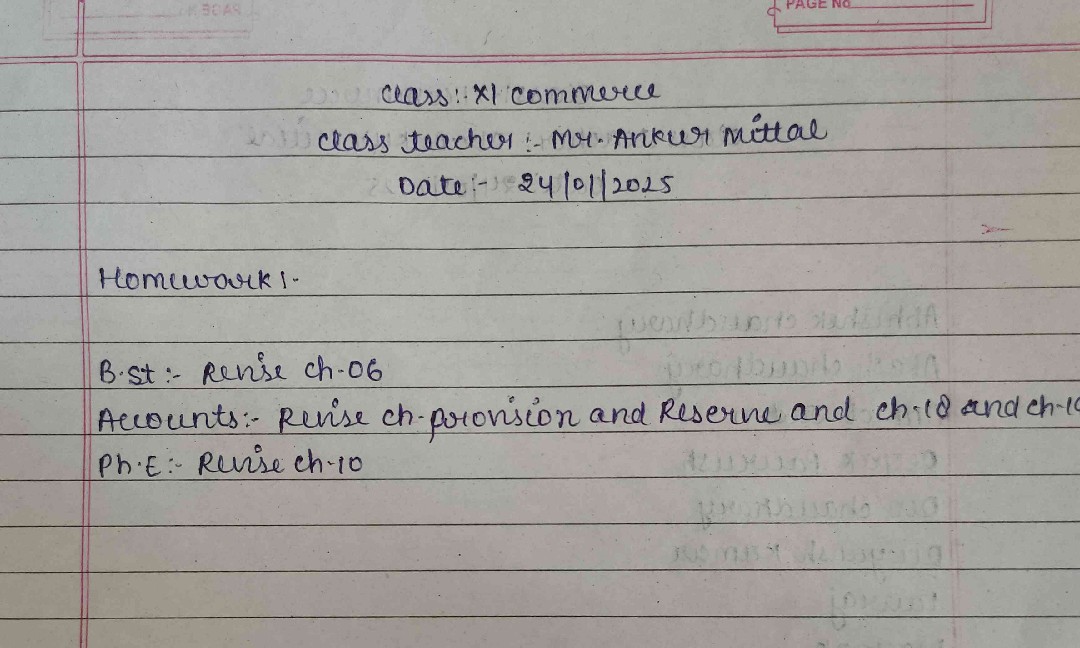 PAGE No
Class:- XI Commerce
Class teacher :- Mr. Ankur Mittal
Date:- 24/01/2025
Homework:-
B.st :- Revise ch-06
Accounts:- Revise ch-provision and Reserve and ch-18 and
Ph.E:- Revise ch-10